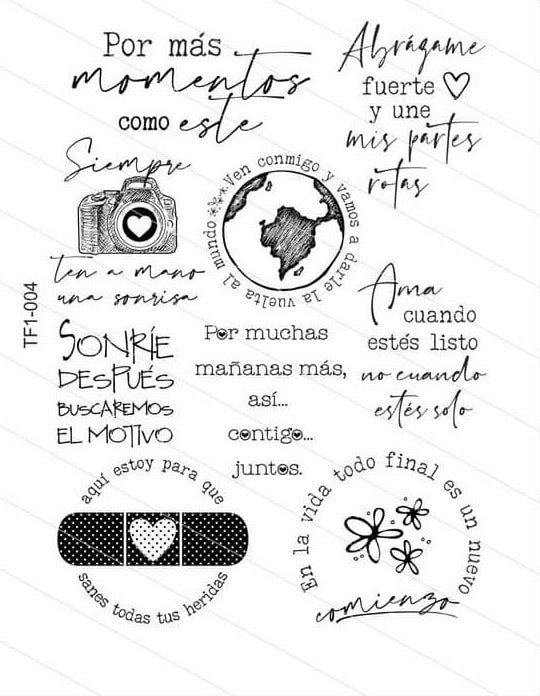 Por más
momentos
como este
Abrázame
fuerte
y une
mis partes
rotas
Siempre
ten a mano
una sonrisa
Ven conmigo y vamos a darle la vuelta al mundo
Ama
cuando
estés listo
no cuando
estés solo
TF1-004
SONRÍE
DESPUÉS
BUSCAREMOS
EL MOTIVO
Por muchas
mañanas más,
así...
contigo...
juntos.
aquí estoy para que
sanes todas tus heridas
En la vida todo final es un nuevo
comienzo